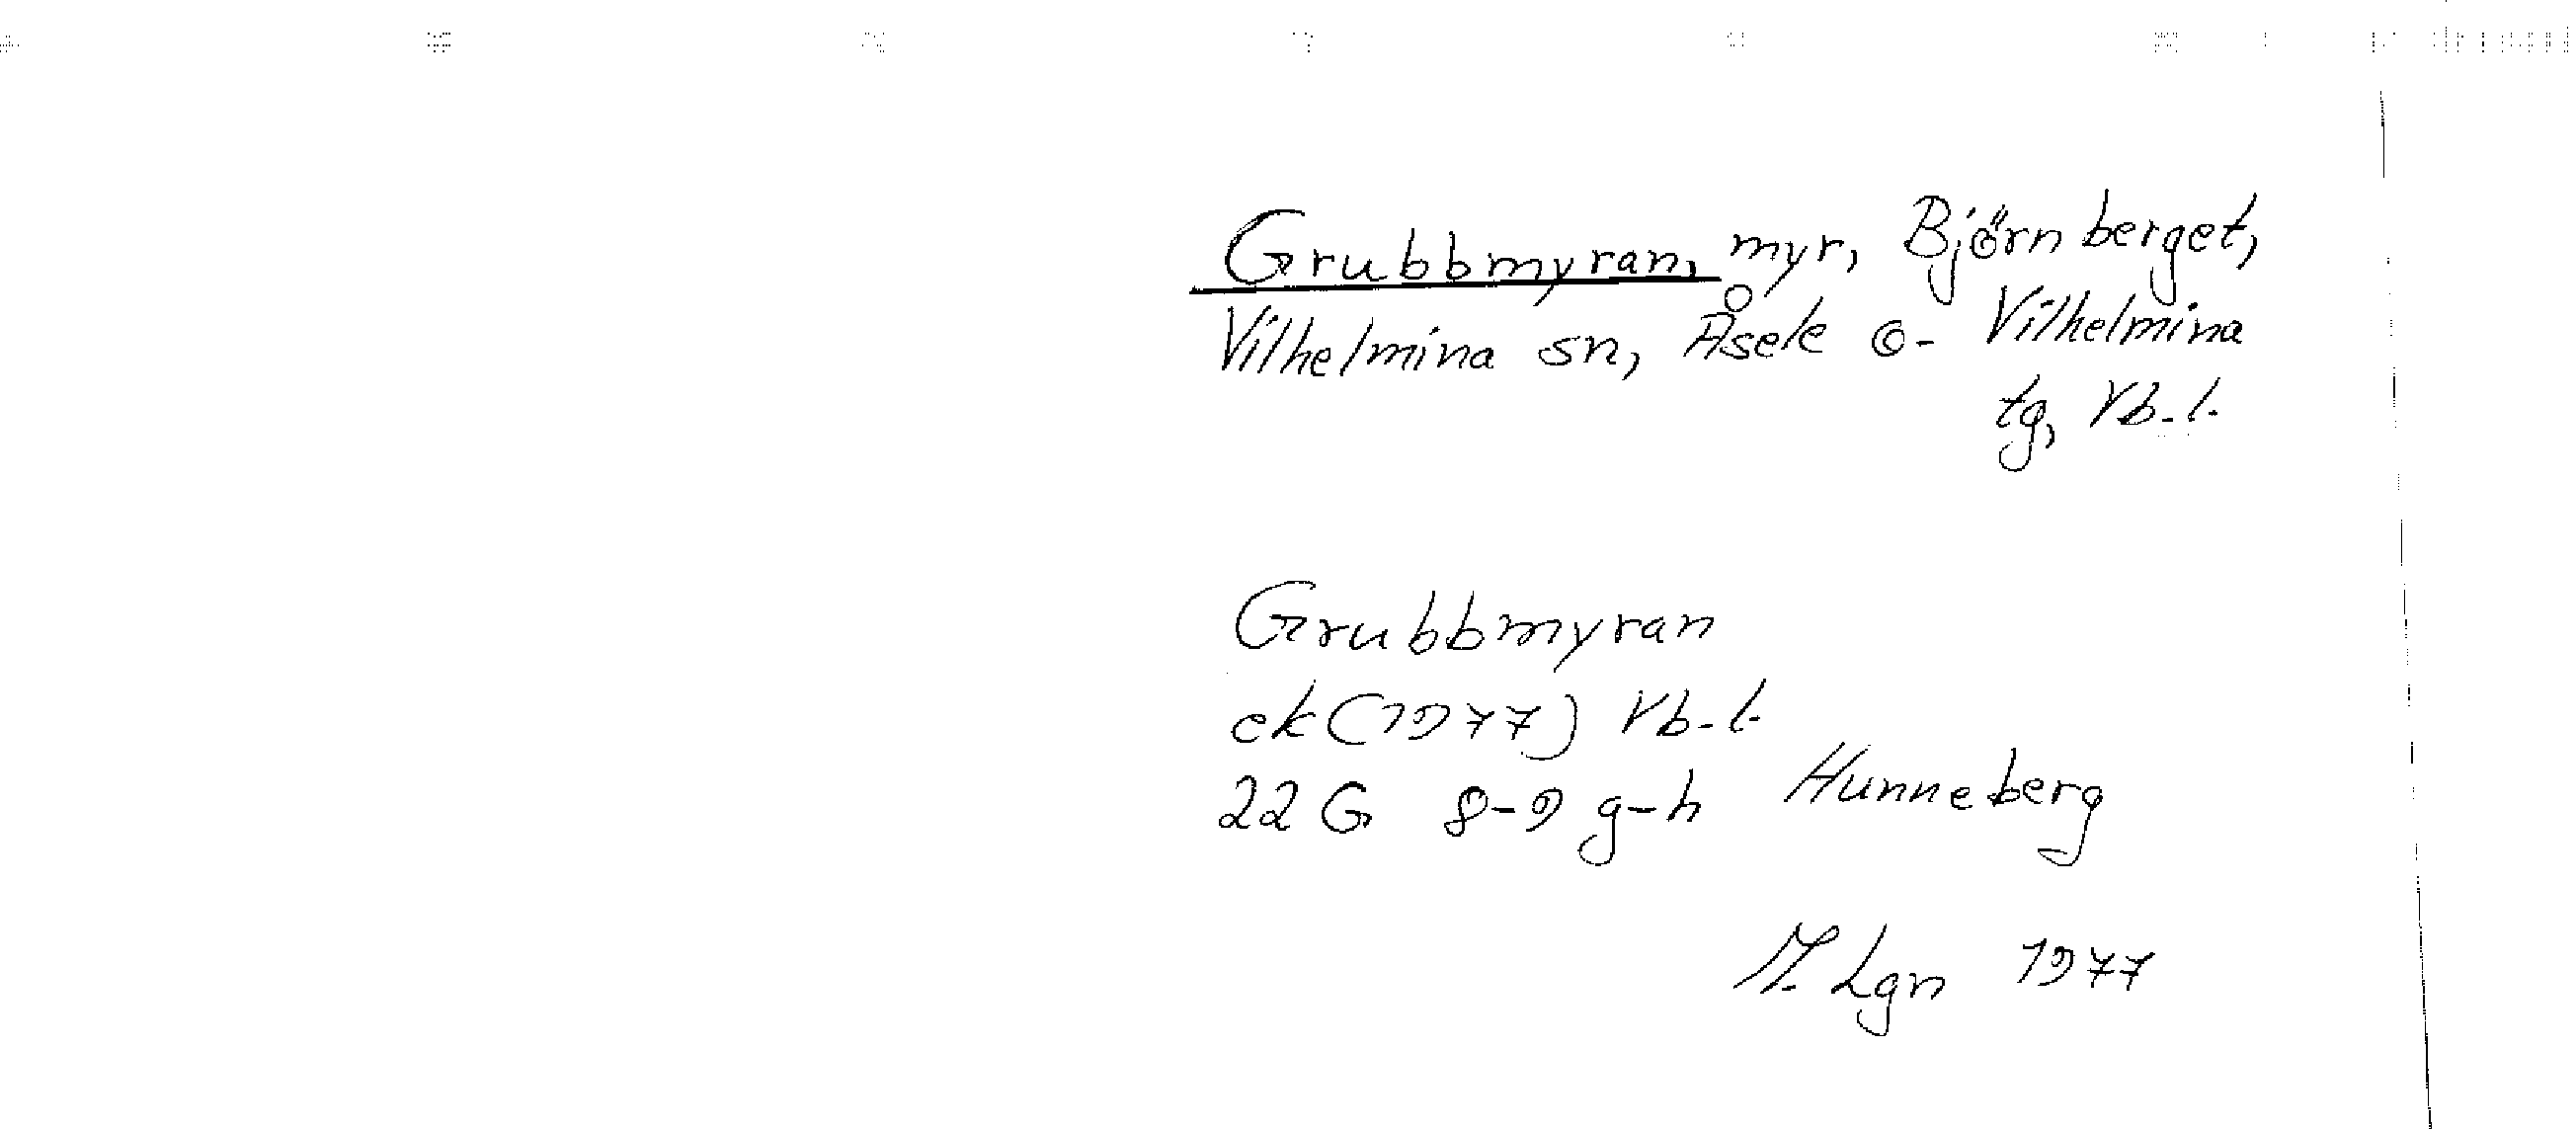 Grubbmyran, myr, Björnberget,
Vilhelmina sn, Åsele o- Vilhelmina
tg, Vb. l.
Grubbmyran
ek (1977) Vb. l.
22 G 8-9 g-h Hunneberg
M. Lgn 1977